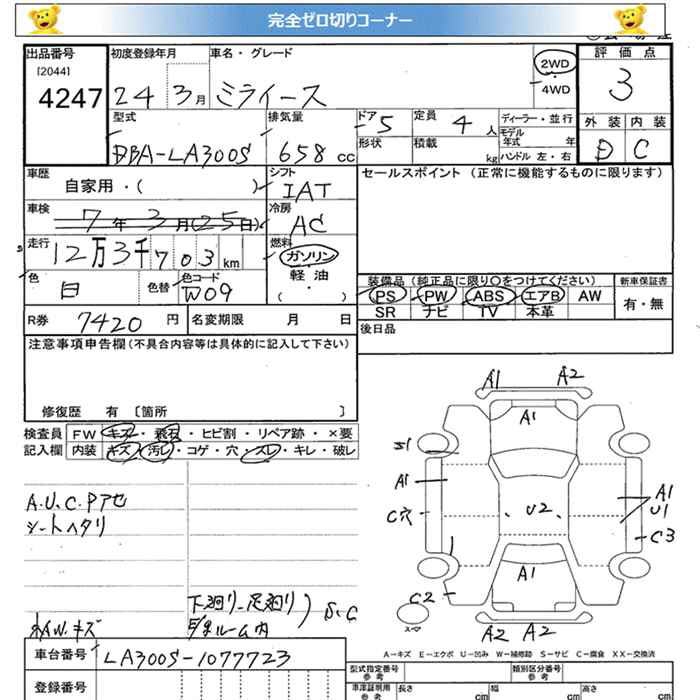 完全ゼロ切りコーナー
出品番号 初度登録年月 車名・グレード 2WD 評価点
[2044] 4247 24 3月 ミライース 4WD 3
型式 排気量 ドア 定員 ディーラー・並行 外装 内装
DBA-LA300S 658 cc 5 4人 モデル年式 年 D C
形状 積載 kg ハンドル 左・右
車歴 シフト セールスポイント(正常に機能するものに限ります)
自家用・( ) IAT
車検 7年3月(25日) 冷房 AC
走行 12万3千703km 燃料 ガソリン
軽油
( ・ )
色 白 色替 色コード W09
装備品(純正品に限り○をつけてください) 新車保証書
PS PW ABS エアB AW 有・無
SR ナビ TV 本革
R券 7420円 名変期限 月 日 後日品
注意事項申告欄(不具合内容等は具体的に記入して下さい)
修復歴 有 〔箇所 〕
検査員 FW キズ・飛石・ヒビ割・リペア跡・×要
記入欄 内装 キズ・汚レ・コゲ・穴・スレ・キレ・破レ
A.U.C.Pアセ
シートヘタリ
下廻リ-足廻リ
ルーム内
S.C
A.W.キズ
A1 A2
A1
S1
A1 A1
U1
C穴 U2
C3
A1
C2
スペア
A2 A2
A-キズ E-エクボ U-凹み W-補修跡 S-サビ C-腐食 XX-交換済
車台番号 LA300S-1077723
登録番号
型式指定番号 類別区分番号
参考
車庫証明用 参考 長さ cm 幅 cm 高さ cm